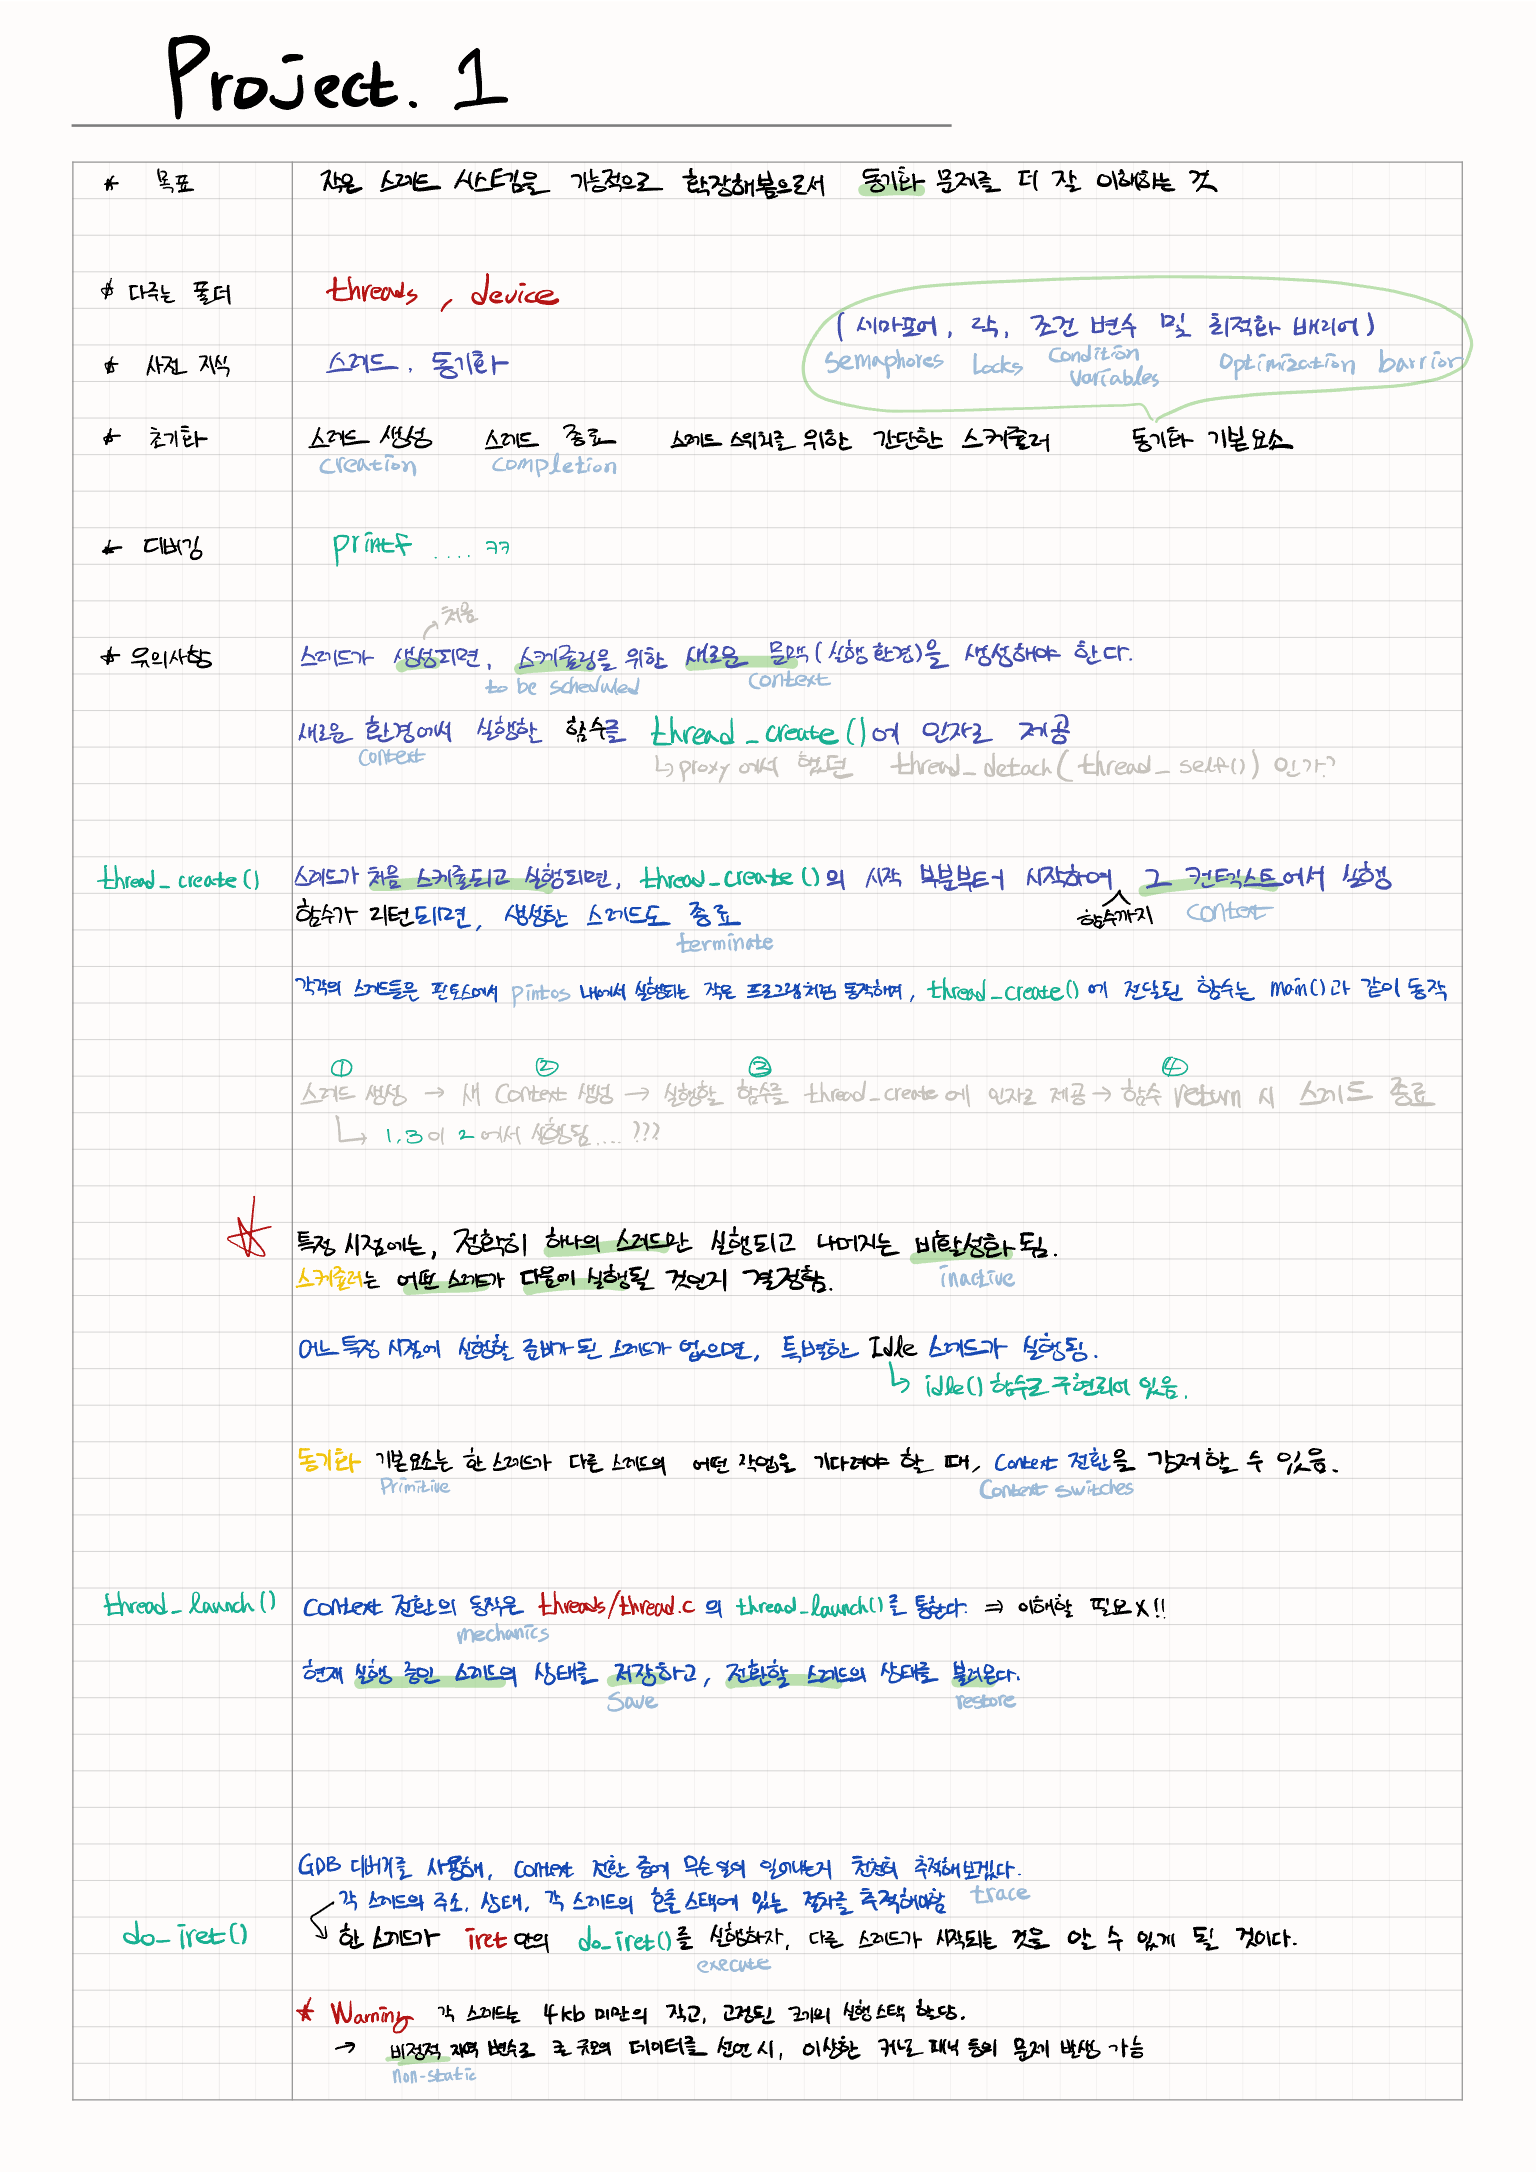 Project. 1
* 목표 작은 스레드 시스템을 기능적으로 확장해봄으로서 동기화 문제를 더 잘 이해하는 것
* 다루는 폴더 threads, device
(세마포어, 락, 조건 변수 및 최적화 배리어)
semaphores Locks Condition variables Optimization barrior
* 사전 지식 스레드, 동기화
* 초기화 스레드 생성 스레드 종료 스레드 스위치를 위한 간단한 스케줄러 동기화 기본요소
creation completion
* 디버깅 printf .... ㅋㅋ
처음
* 유의사항 스레드가 생성되면, 스케줄링을 위한 새로운 문맥(실행 환경)을 생성해야 한다.
to be scheduled context
새로운 환경에서 실행할 함수를 thread_create()에 인자로 제공
context ↳ proxy에서 했던 thread_detach(thread_self()) 인가?
thread_create() 스레드가 처음 스케줄되고 실행되면, thread_create()의 시작 부분부터 시작하여 그 컨텍스트에서 실행
함수까지 context
함수가 리턴되면, 생성한 스레드도 종료
terminate
각각의 스레드들은 핀토스에서 pintos 내에서 실행되는 작은 프로그램처럼 동작하며, thread_create()에 전달된 함수는 main()과 같이 동작
① ② ③ ④
스레드 생성 → 새 Context 생성 → 실행할 함수를 thread_create에 인자로 제공 → 함수 return 시 스레드 종료
↳ 1, 3이 2에서 실행됨.... ???
특정 시점에는, 정확히 하나의 스레드만 실행되고 나머지는 비활성화 됨.
스케줄러는 어떤 스레드가 다음에 실행될 것인지 결정함.
inactive
어느 특정 시점에 실행할 준비가 된 스레드가 없으면, 특별한 Idle 스레드가 실행됨.
↳ idle() 함수로 구현되어 있음.
동기화 기본요소는 한 스레드가 다른 스레드의 어떤 작업을 기다려야 할 때, Context 전환을 강제할 수 있음.
Primitive Context switches
thread_launch() Context 전환의 동작은 threads/thread.c 의 thread_launch()를 통한다. ⇒ 이해할 필요 X!!
mechanics
현재 실행 중인 스레드의 상태를 저장하고, 전환할 스레드의 상태를 불러온다.
Save restore
GDB 디버거를 사용해, Context 전환 중에 무슨 일이 일어나는지 천천히 추적해보겠다.
각 스레드의 주소, 상태, 각 스레드의 호출 스택에 있는 절차를 추적해야함 trace
do_iret() 한 스레드가 iret 안의 do_iret()를 실행하자, 다른 스레드가 시작되는 것을 알 수 있게 될 것이다.
execute
* Warning 각 스레드는 4kb 미만의 작고, 고정된 크기의 실행 스택 할당.
→ 비정적 지역 변수로 큰 규모의 데이터를 선언 시, 이상한 커널 패닉 등의 문제 발생 가능
non-static